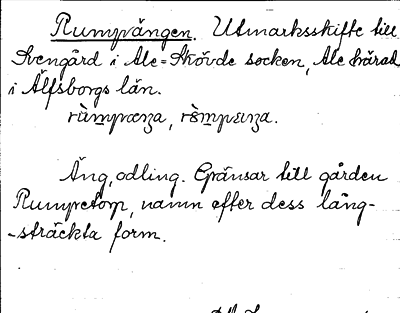 Rumpvängen. Utmarksskifte till
Svengård i Ale-Skövde socken, Ale härad
i Älfsborgs län.
Äng, odling. Gränsar till gården
Rumpretorp, namn efter dess lång-
-sträckta form.